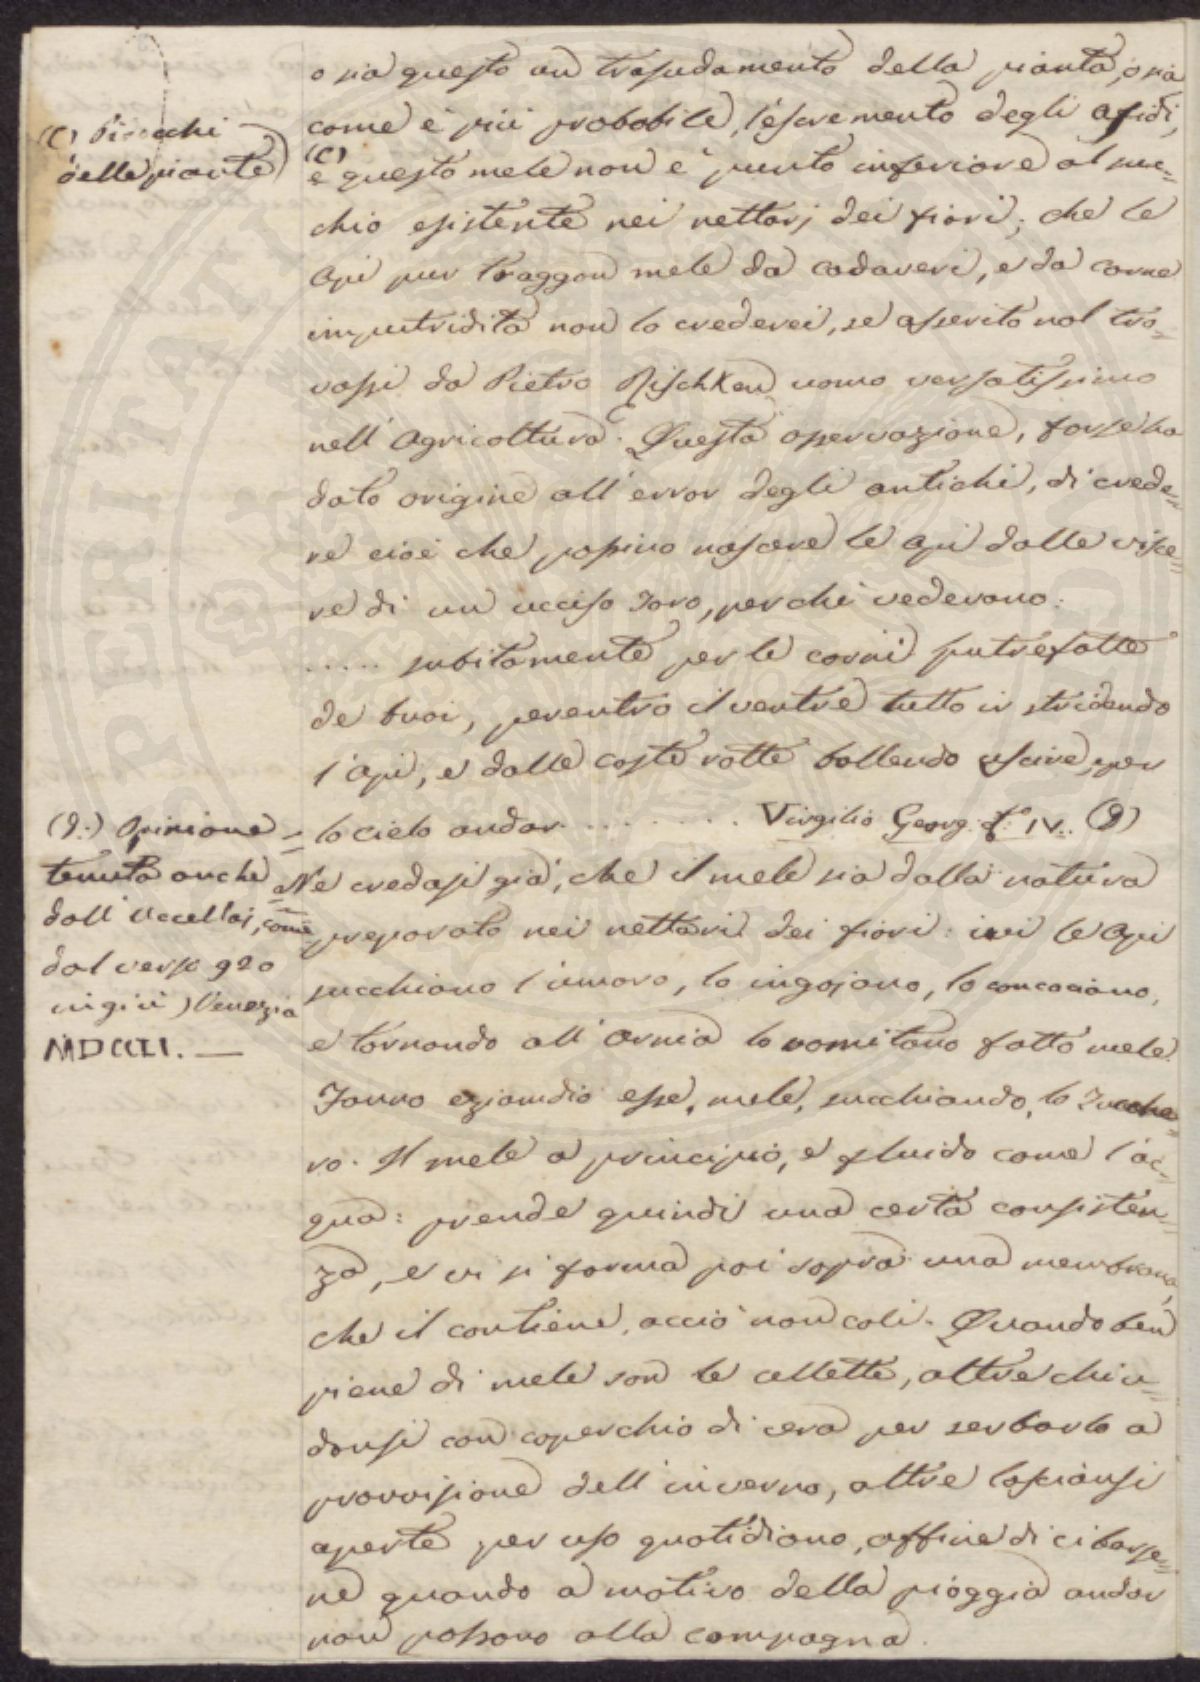 o sia questo un trasudamento della pianta, o sia
come è più probabile, l'escremento degli afidi,
(C) Pidocchi
delle piante)
(C)
e questo mele non è punto inferiore al suc=
chio esistente nei nettarj dei fiori; che le
Api pur traggon mele da cadaveri, e da carne
imputridita non lo crederei, se asserito nol tro=
vassi da Pietro Rischken uomo versatissimo
nell'Agricoltura. Questa osservazione, forse ha
dato origine all'error degli antichi, di crede=
re cioè che possino nascere le Api dalle visce=
re di un ucciso Toro, perchè vedevano:
..... subitamente per le carni putrefatte
de buoi, per entro il ventre tutto ir stridendo
l'Api, e dalle coste rotte bollendo uscire, per
lo cielo andar. . . . . . . . Virgilio Georg. IV. (D)
(D.) Opinione =
tenuta anche
dall'Uccellaj, come
dal verso 920
in giù) Venezia
MDCCLI. —
Ne credasi già, che il mele sia dalla natura
preparato nei nettari dei fiori: ivi le Api
succhiano l'umore, lo ingojano, lo concociano,
e tornando all'Arnia lo vomitano fatto mele.
Fanno eziamdio esse, mele, succhiando, lo Zucche=
ro. Il mele a principio, e fluido come l'ac=
qua: prende quindi una certa consisten=
za, e vi si forma poi sopra una membrana,
che il contiene, acciò non coli. Quando ben
piene di mele son le cellette, altre chiu=
donsi con coperchio di cera per serbarlo a
provvisione dell'inverno, altre lascionsi
aperte per uso quotidiano, affine di cibarse=
ne quando a motivo della pioggia andar
non possono alla campagna.